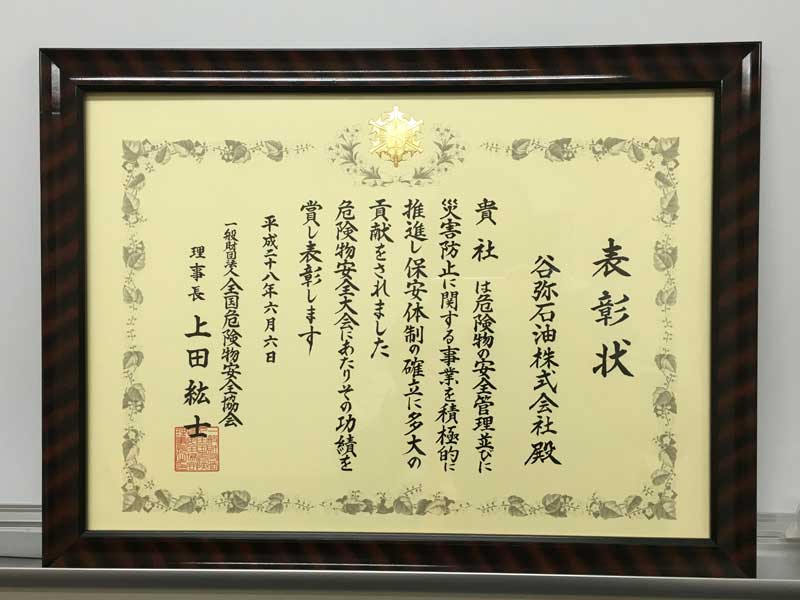 表彰状
谷弥石油株式会社殿
貴社は危険物の安全管理並びに
災害防止に関する事業を積極的に
推進し保安体制の確立に多大の
貢献をされました
危険物安全大会にあたりその功績を
賞し表彰します
平成二十八年六月六日
一般財団法人全国危険物安全協会
理事長 上田紘士